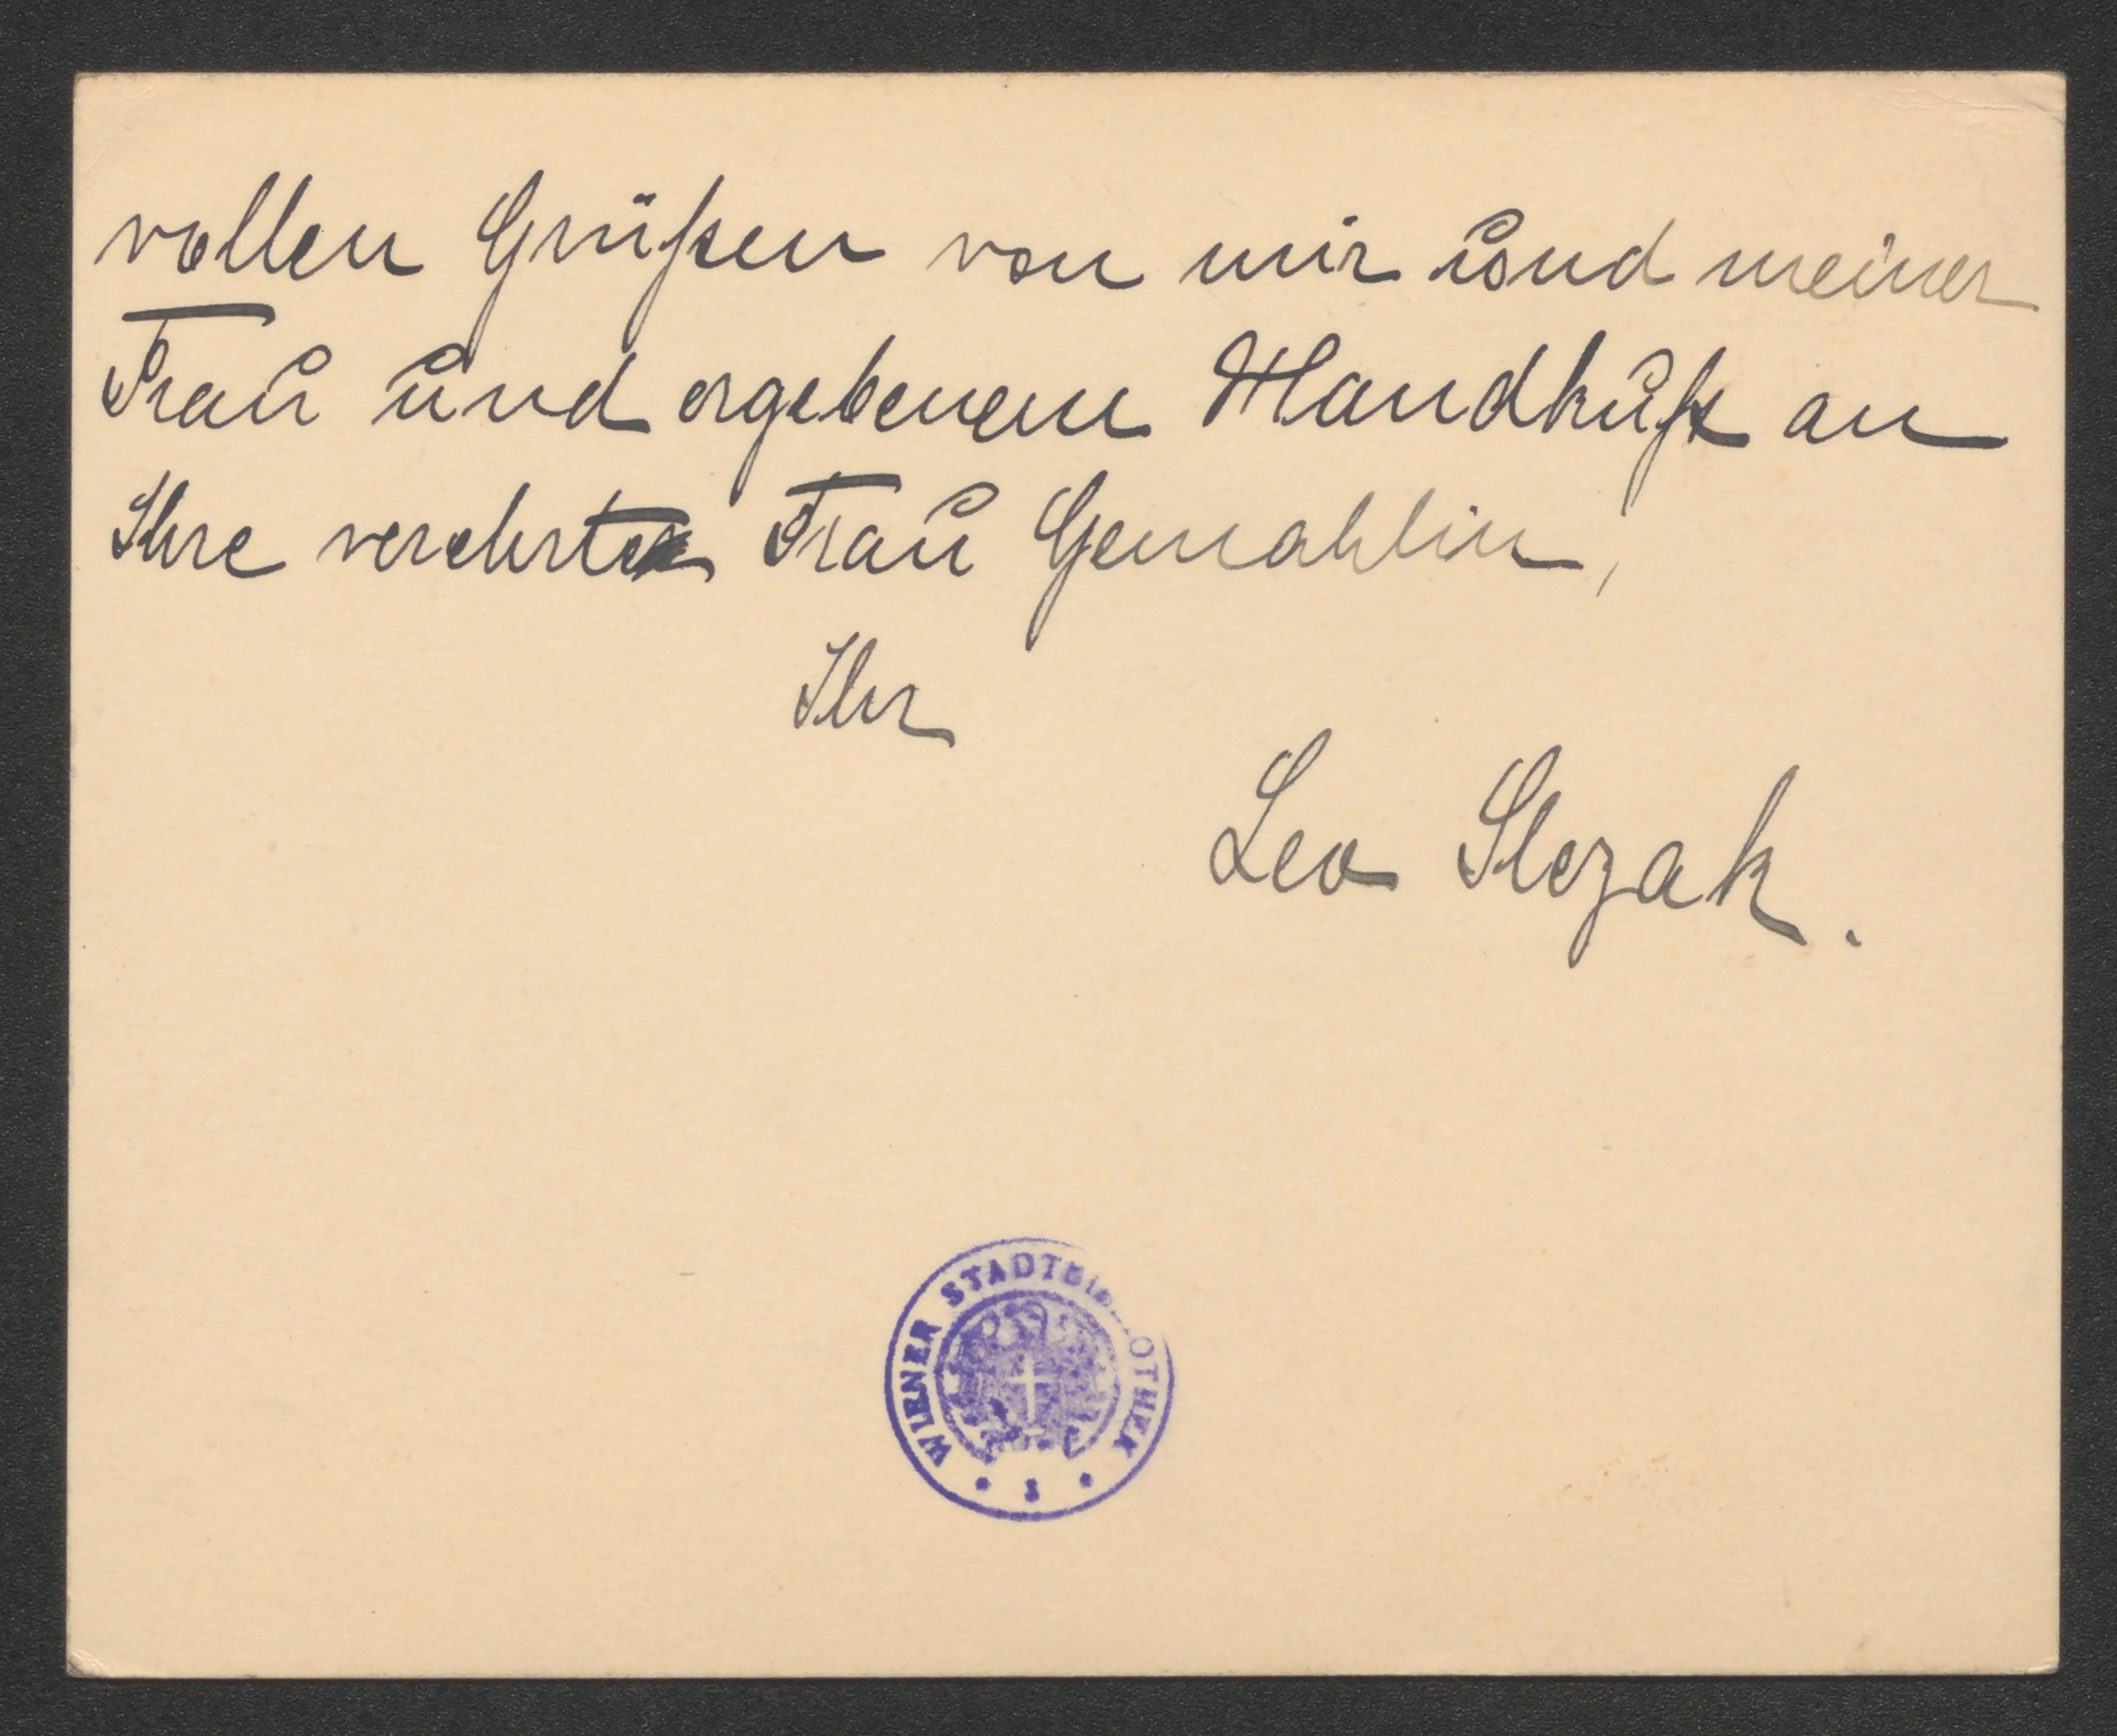 vollen Grüßen von mir und meiner
Frau und ergebenem Handkuß an
Ihre verehrte Frau Gemahlin,
Ihr
Leo Slezak.
WIENER STADTBIBLIOTHEK